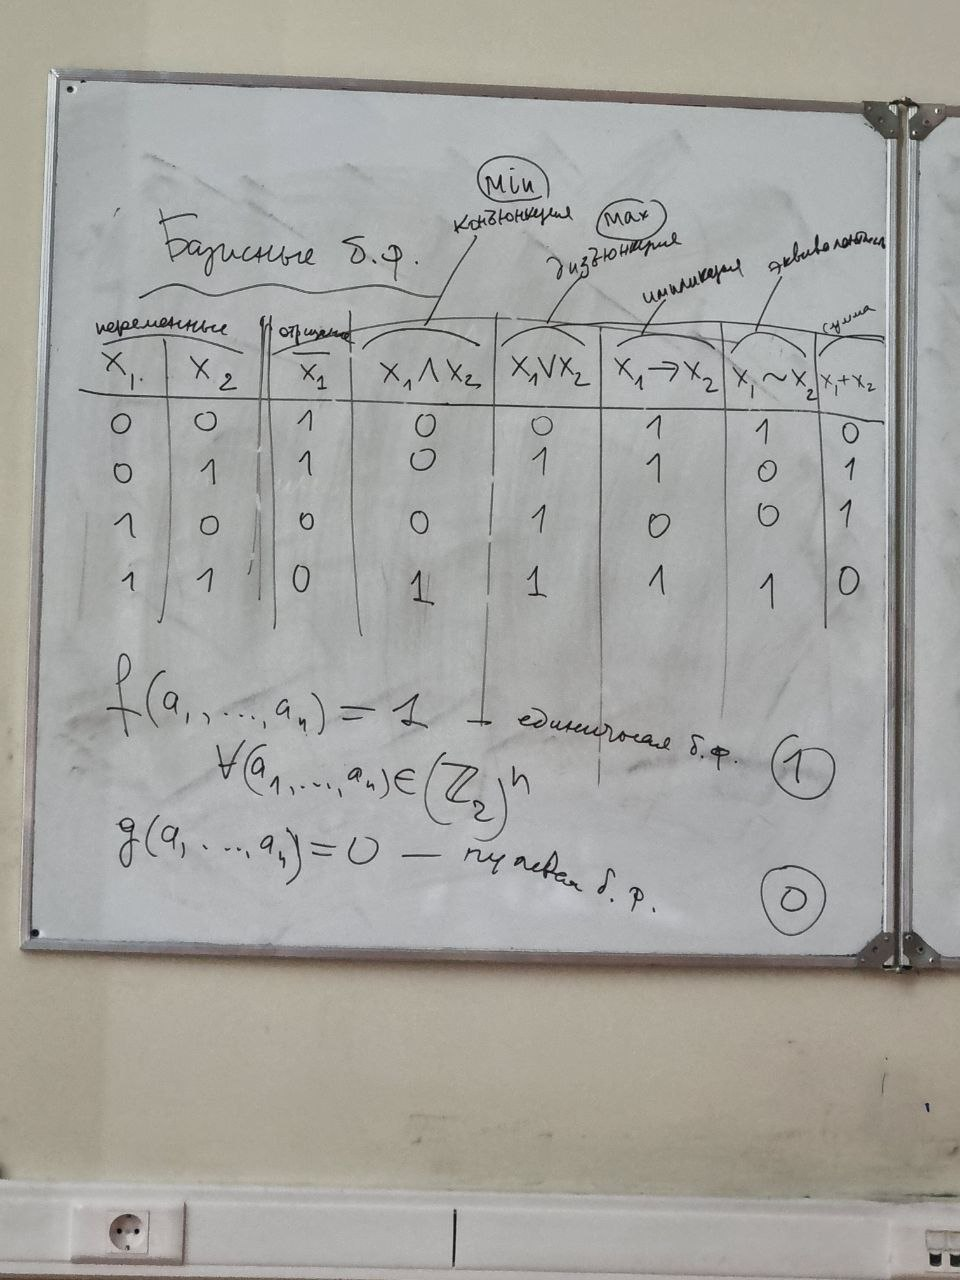 Min
конъюнкция
Max
Базисные б.ф.
дизъюнкция
импликация
эквивалентность
сумма
переменные отрицание
x₁ x₂ x̄₁ x₁ ∧ x₂ x₁ ∨ x₂ x₁ → x₂ x₁ ~ x₂ x₁ + x₂
0 0 1 0 0 1 1 0
0 1 1 0 1 1 0 1
1 0 0 0 1 0 0 1
1 1 0 1 1 1 1 0
f(a₁, ..., aₙ) = 1 – единичная б.ф. 1
∀(a₁, ..., aₙ) ∈ (ℤ₂)ⁿ
g(a₁ ..., aₙ) = 0 — нулевая б.ф. 0